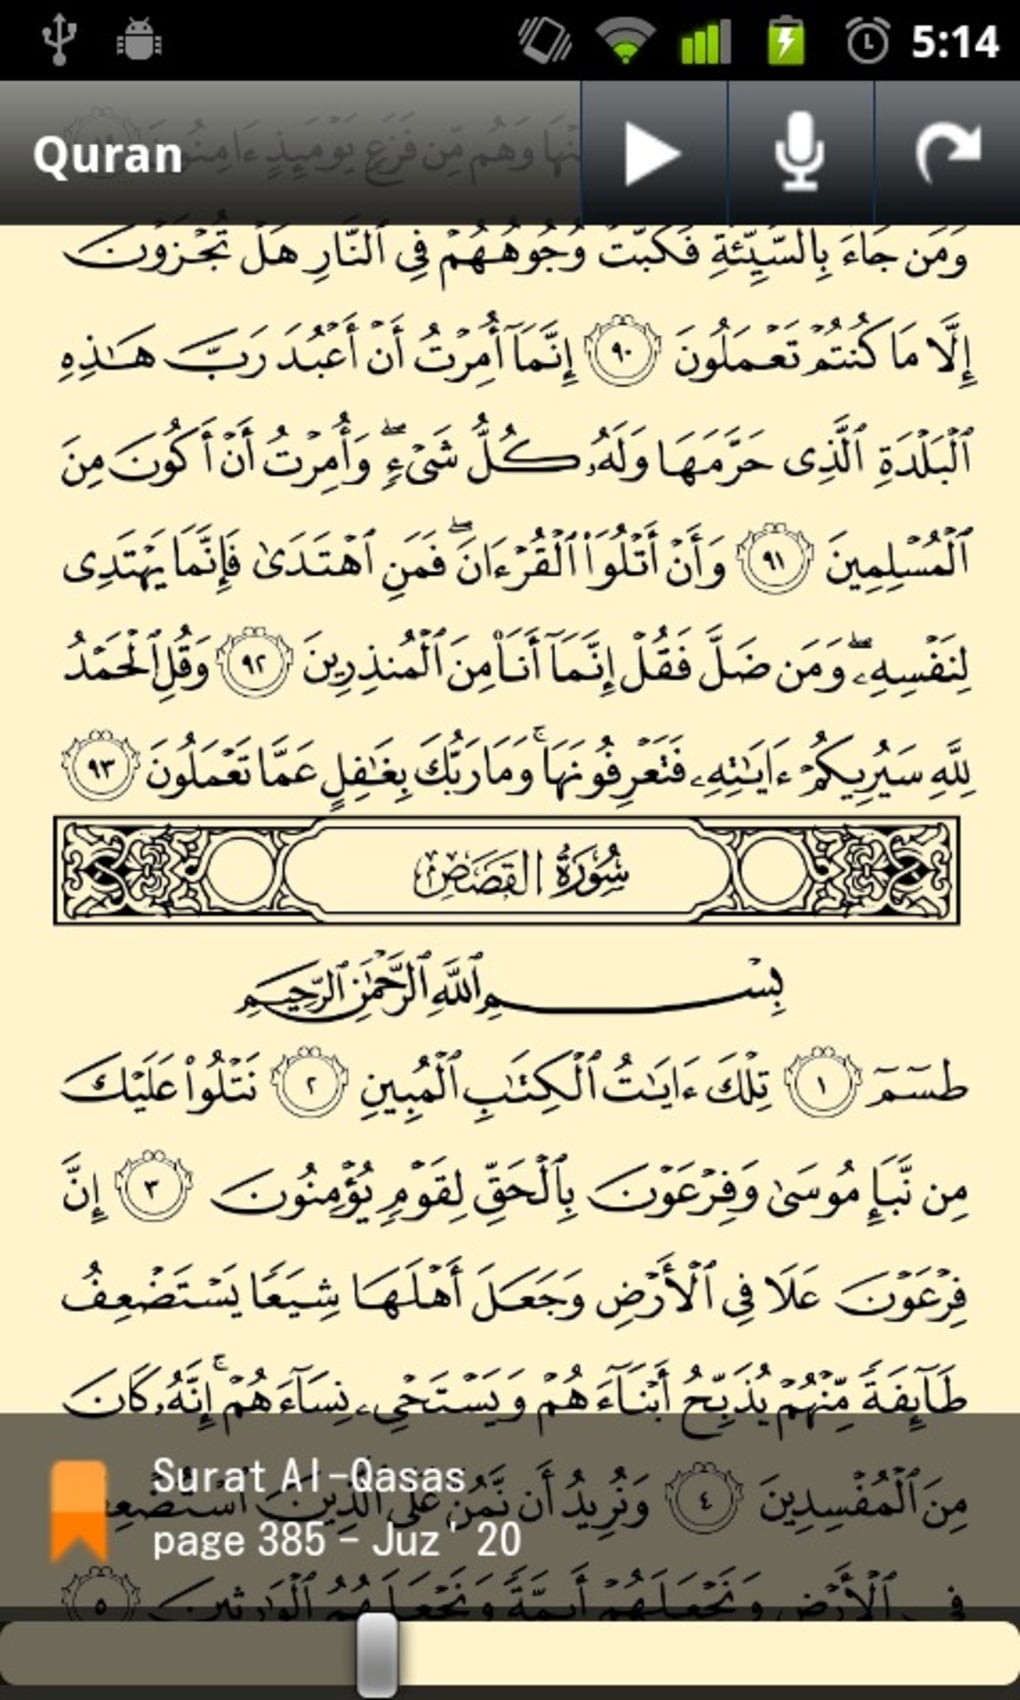 5:14
Quran
وَهُم مِّن فَزَعٍ يَوْمَئِذٍ ءَامِنُونَ
وَمَن جَآءَ بِٱلسَّيِّئَةِ فَكُبَّتْ وُجُوهُهُمْ فِى ٱلنَّارِ هَلْ تُجْزَوْنَ
إِلَّا مَا كُنتُمْ تَعْمَلُونَ ٩٠ إِنَّمَآ أُمِرْتُ أَنْ أَعْبُدَ رَبَّ هَـٰذِهِ
ٱلْبَلْدَةِ ٱلَّذِى حَرَّمَهَا وَلَهُۥ كُلُّ شَىْءٍۖ وَأُمِرْتُ أَنْ أَكُونَ مِنَ
ٱلْمُسْلِمِينَ ٩١ وَأَنْ أَتْلُوَا۟ ٱلْقُرْءَانَۖ فَمَنِ ٱهْتَدَىٰ فَإِنَّمَا يَهْتَدِى
لِنَفْسِهِۦۖ وَمَن ضَلَّ فَقُلْ إِنَّمَآ أَنَا۠ مِنَ ٱلْمُنذِرِينَ ٩٢ وَقُلِ ٱلْحَمْدُ
لِلَّهِ سَيُرِيكُمْ ءَايَـٰتِهِۦ فَتَعْرِفُونَهَاۚ وَمَا رَبُّكَ بِغَـٰفِلٍ عَمَّا تَعْمَلُونَ ٩٣
سُورَةُ القَصَصِ
بِسْمِ ٱللَّهِ ٱلرَّحْمَـٰنِ ٱلرَّحِيمِ
طسٓمٓ ١ تِلْكَ ءَايَـٰتُ ٱلْكِتَـٰبِ ٱلْمُبِينِ ٢ نَتْلُوا۟ عَلَيْكَ
مِن نَّبَإِ مُوسَىٰ وَفِرْعَوْنَ بِٱلْحَقِّ لِقَوْمٍ يُؤْمِنُونَ ٣ إِنَّ
فِرْعَوْنَ عَلَا فِى ٱلْأَرْضِ وَجَعَلَ أَهْلَهَا شِيَعًا يَسْتَضْعِفُ
طَآئِفَةً مِّنْهُمْ يُذَبِّحُ أَبْنَآءَهُمْ وَيَسْتَحْىِۦ نِسَآءَهُمْۚ إِنَّهُۥ كَانَ
مِنَ ٱلْمُفْسِدِينَ ٤ وَنُرِيدُ أَن نَّمُنَّ عَلَى ٱلَّذِينَ ٱسْتُضْعِفُوا۟
Surat Al-Qasas
page 385 - Juz' 20
فِى ٱلْأَرْضِ وَنَجْعَلَهُمْ أَئِمَّةً وَنَجْعَلَهُمُ ٱلْوَٰرِثِينَ ٥